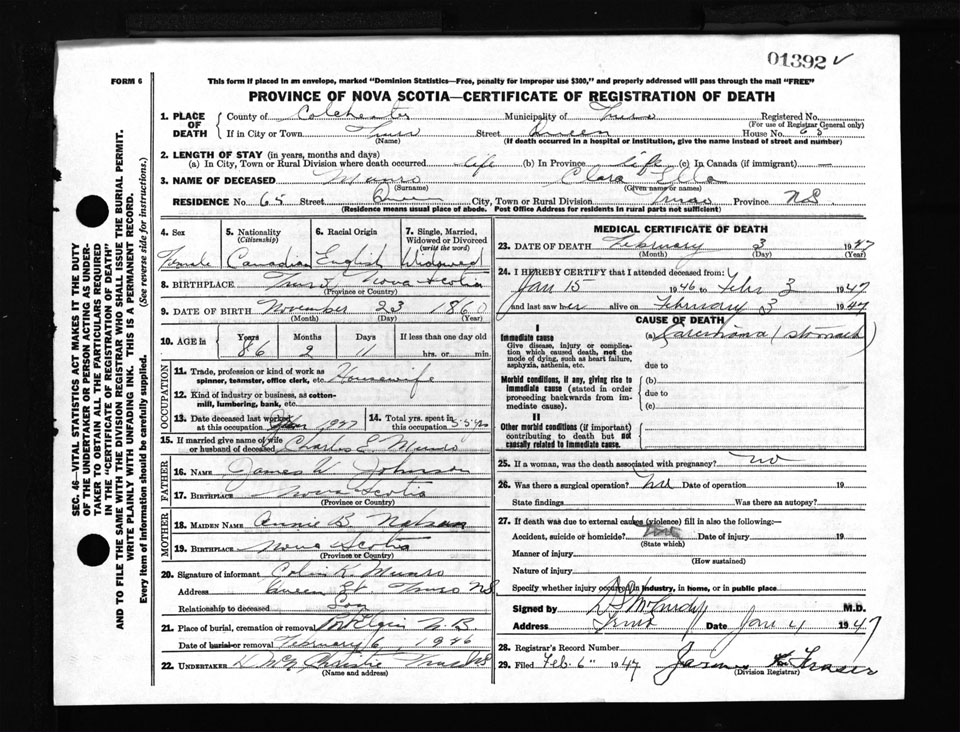 01392 ✓
FORM 6
This form if placed in an envelope, marked "Dominion Statistics—Free, penalty for improper use $300," and properly addressed will pass through the mail "FREE"
PROVINCE OF NOVA SCOTIA—CERTIFICATE OF REGISTRATION OF DEATH
SEC. 46—VITAL STATISTICS ACT MAKES IT THE DUTY
OF THE UNDERTAKER OR PERSON ACTING AS UNDER-
TAKER TO OBTAIN ALL THE PARTICULARS REQUIRED
IN THE "CERTIFICATE OF REGISTRATION OF DEATH"
AND TO FILE THE SAME WITH THE DIVISION REGISTRAR WHO SHALL ISSUE THE BURIAL PERMIT.
WRITE PLAINLY WITH UNFADING INK. THIS IS A PERMANENT RECORD.
Every item of Information should be carefully supplied. (See reverse side for instructions.)
1. PLACE OF DEATH
County of Colchester Municipality of Truro Registered No.
(For use of Registrar General only)
If in City or Town Truro Street Queen House No. 65
(Name) (If death occurred in a hospital or institution, give the name instead of street and number)
2. LENGTH OF STAY (in years, months and days)
(a) In City, Town or Rural Division where death occurred life (b) In Province life (c) In Canada (if immigrant) —
3. NAME OF DECEASED Munro Clara Ella
(Surname) (Given name or names)
RESIDENCE No. 65 Street Queen City, Town or Rural Division Truro Province N.S.
(Residence means usual place of abode. Post Office Address for residents in rural parts not sufficient)
4. Sex
Female
5. Nationality
(Citizenship)
Canadian
6. Racial Origin
English
7. Single, Married,
Widowed or Divorced
(write the word)
Widowed
8. BIRTHPLACE Truro, Nova Scotia
(Province or Country)
9. DATE OF BIRTH November 23 1860
(Month) (Day) (Year)
10. AGE in Years Months Days If less than one day old
86 2 11 hrs. or min.
OCCUPATION
11. Trade, profession or kind of work as
spinner, teamster, office clerk, etc. Housewife
12. Kind of industry or business, as cotton-
mill, lumbering, bank, etc.
13. Date deceased last worked
at this occupation Jan 1947
14. Total yrs. spent in
this occupation 55 yrs
15. If married give name of wife
or husband of deceased Charles E. Munro
FATHER
16. NAME James W. Johnson
17. BIRTHPLACE Nova Scotia
(Province or Country)
MOTHER
18. MAIDEN NAME Annie B. Nelson
19. BIRTHPLACE Nova Scotia
(Province or Country)
20. Signature of informant Colin K. Munro
Address Queen St. Truro NS
Relationship to deceased Son
21. Place of burial, cremation or removal Port Elgin N.B.
Date of burial or removal February 6, 1946
22. UNDERTAKER Christie Truro NS
(Name and address)
MEDICAL CERTIFICATE OF DEATH
23. DATE OF DEATH February 3 1947
(Month) (Day) (Year)
24. I HEREBY CERTIFY that I attended deceased from:
Jan 15 1946 to Feb 3 1947
and last saw her alive on February 3 1947
CAUSE OF DEATH
I
Immediate cause
Give disease, injury or complica-
tion which caused death, not the
mode of dying, such as heart failure,
asphyxia, asthenia, etc.
(a) Carcinoma (stomach)
due to
Morbid conditions, if any, giving rise to
immediate cause (stated in order
proceeding backwards from im-
mediate cause).
(b)
due to
(c)
II
Other morbid conditions (if important)
contributing to death but not
causally related to immediate cause.
25. If a woman, was the death associated with pregnancy? no
26. Was there a surgical operation? no Date of operation 19
State findings Was there an autopsy?
27. If death was due to external causes (violence) fill in also the following:—
Accident, suicide or homicide? Date of injury 19
(State which)
Manner of injury
(How sustained)
Nature of injury
Specify whether injury occurred in industry, in home, or in public place
Signed by D S McCurdy M.D.
Address Truro Date Jan 4 1947
28. Registrar's Record Number
29. Filed Feb. 6" 1947 Fraser
(Division Registrar)